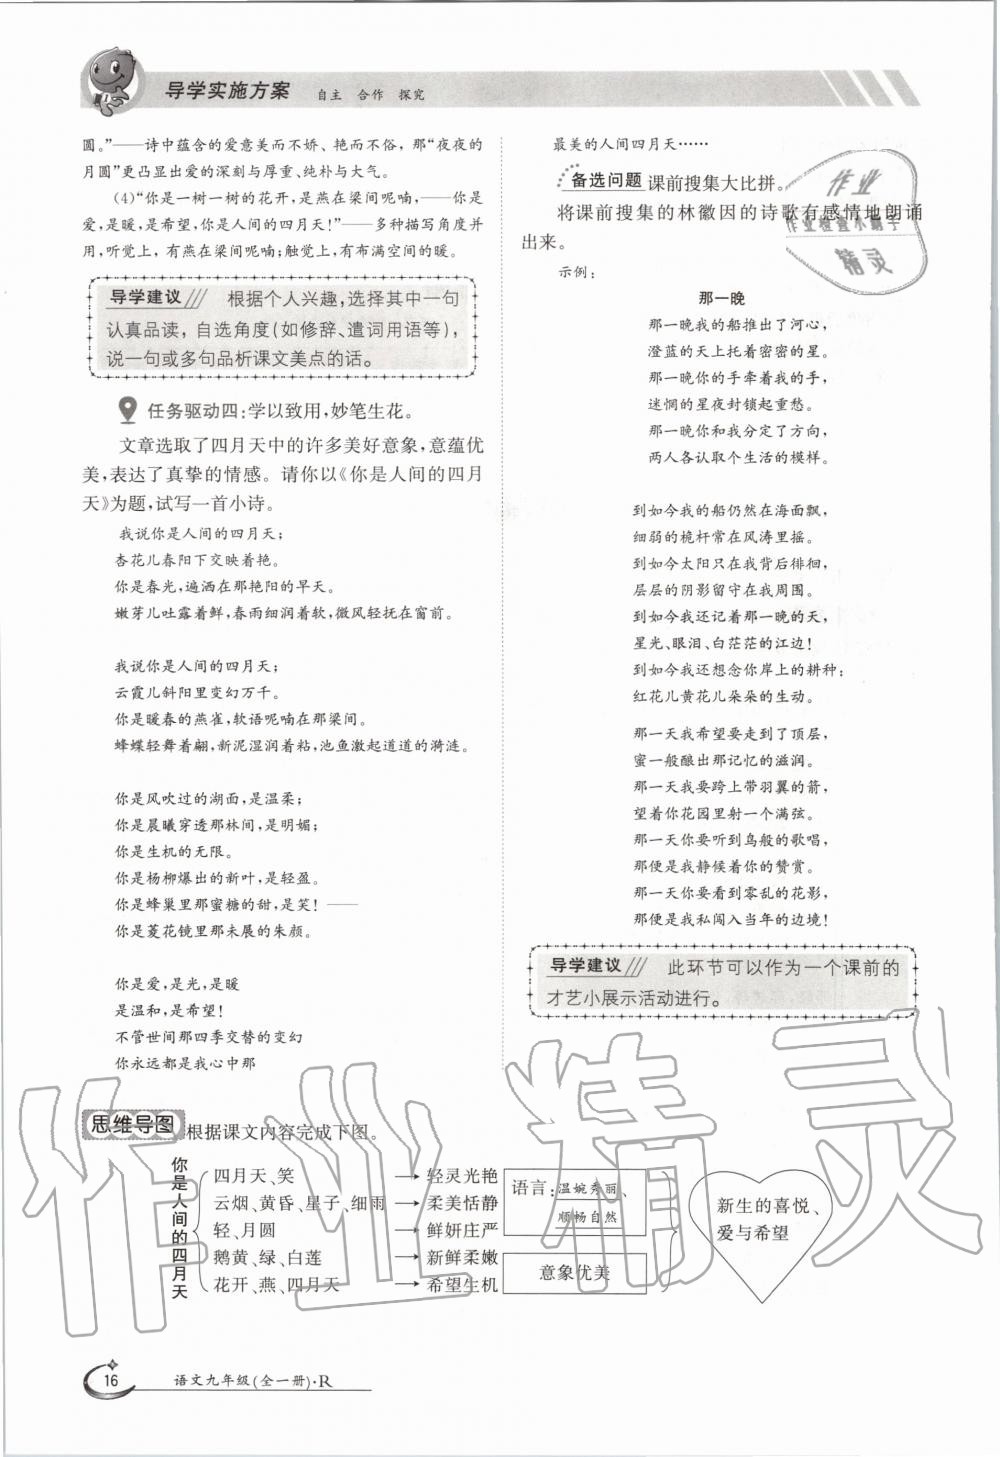 导学实施方案 自主 合作 探究
圆。”——诗中蕴含的爱意美而不娇、艳而不俗，那“夜夜的
月圆”更凸显出爱的深刻与厚重、纯朴与大气。
(4)“你是一树一树的花开，是燕在梁间呢喃，——你是
爱，是暖，是希望，你是人间的四月天！”——多种描写角度并
用，听觉上，有燕在梁间呢喃；触觉上，有布满空间的暖。
导学建议 根据个人兴趣，选择其中一句
认真品读，自选角度（如修辞、遣词用语等），
说一句或多句品析课文美点的话。
任务驱动四：学以致用，妙笔生花。
文章选取了四月天中的许多美好意象，意蕴优
美，表达了真挚的情感。请你以《你是人间的四月
天》为题，试写一首小诗。
我说你是人间的四月天；
杏花儿春阳下交映着艳。
你是春光，遍洒在那艳阳的早天。
嫩芽儿吐露着鲜，春雨细润着软，微风轻抚在窗前。
我说你是人间的四月天；
云霞儿斜阳里变幻万千。
你是暖春的燕雀，软语呢喃在那梁间。
蜂蝶轻舞着翩，新泥湿润着粘，池鱼激起道道的漪涟。
你是风吹过的湖面，是温柔；
你是晨曦穿透那林间，是明媚；
你是生机的无限。
你是杨柳爆出的新叶，是轻盈。
你是蜂巢里那蜜糖的甜，是笑！——
你是菱花镜里那未展的朱颜。
你是爱，是光，是暖
是温和，是希望！
不管世间那四季交替的变幻
你永远都是我心中那
最美的人间四月天……
备选问题 课前搜集大比拼。
将课前搜集的林徽因的诗歌有感情地朗诵
出来。
示例：
那一晚
那一晚我的船推出了河心，
澄蓝的天上托着密密的星。
那一晚你的手牵着我的手，
迷惘的星夜封锁起重愁。
那一晚你和我分定了方向，
两人各认取个生活的模样。
到如今我的船仍然在海面飘，
细弱的桅杆常在风涛里摇。
到如今太阳只在我背后徘徊，
层层的阴影留守在我周围。
到如今我还记着那一晚的天，
星光、眼泪、白茫茫的江边！
到如今我还想念你岸上的耕种：
红花儿黄花儿朵朵的生动。
那一天我希望要走到了顶层，
蜜一般酿出那记忆的滋润。
那一天我要跨上带羽翼的箭，
望着你花园里射一个满弦。
那一天你要听到鸟般的歌唱，
那便是我静候着你的赞赏。
那一天你要看到零乱的花影，
那便是我私闯入当年的边境！
导学建议 此环节可以作为一个课前的
才艺小展示活动进行。
作业
作业检查小助手
精灵
思维导图 根据课文内容完成下图。
你是人间的四月天
四月天、笑 → 轻灵光艳
云烟、黄昏、星子、细雨 → 柔美恬静
轻、月圆 → 鲜妍庄严
鹅黄、绿、白莲 → 新鲜柔嫩
花开、燕、四月天 → 希望生机
语言：温婉秀丽、
顺畅自然
意象优美
新生的喜悦、
爱与希望
作业精灵
16 语文九年级（全一册）·R